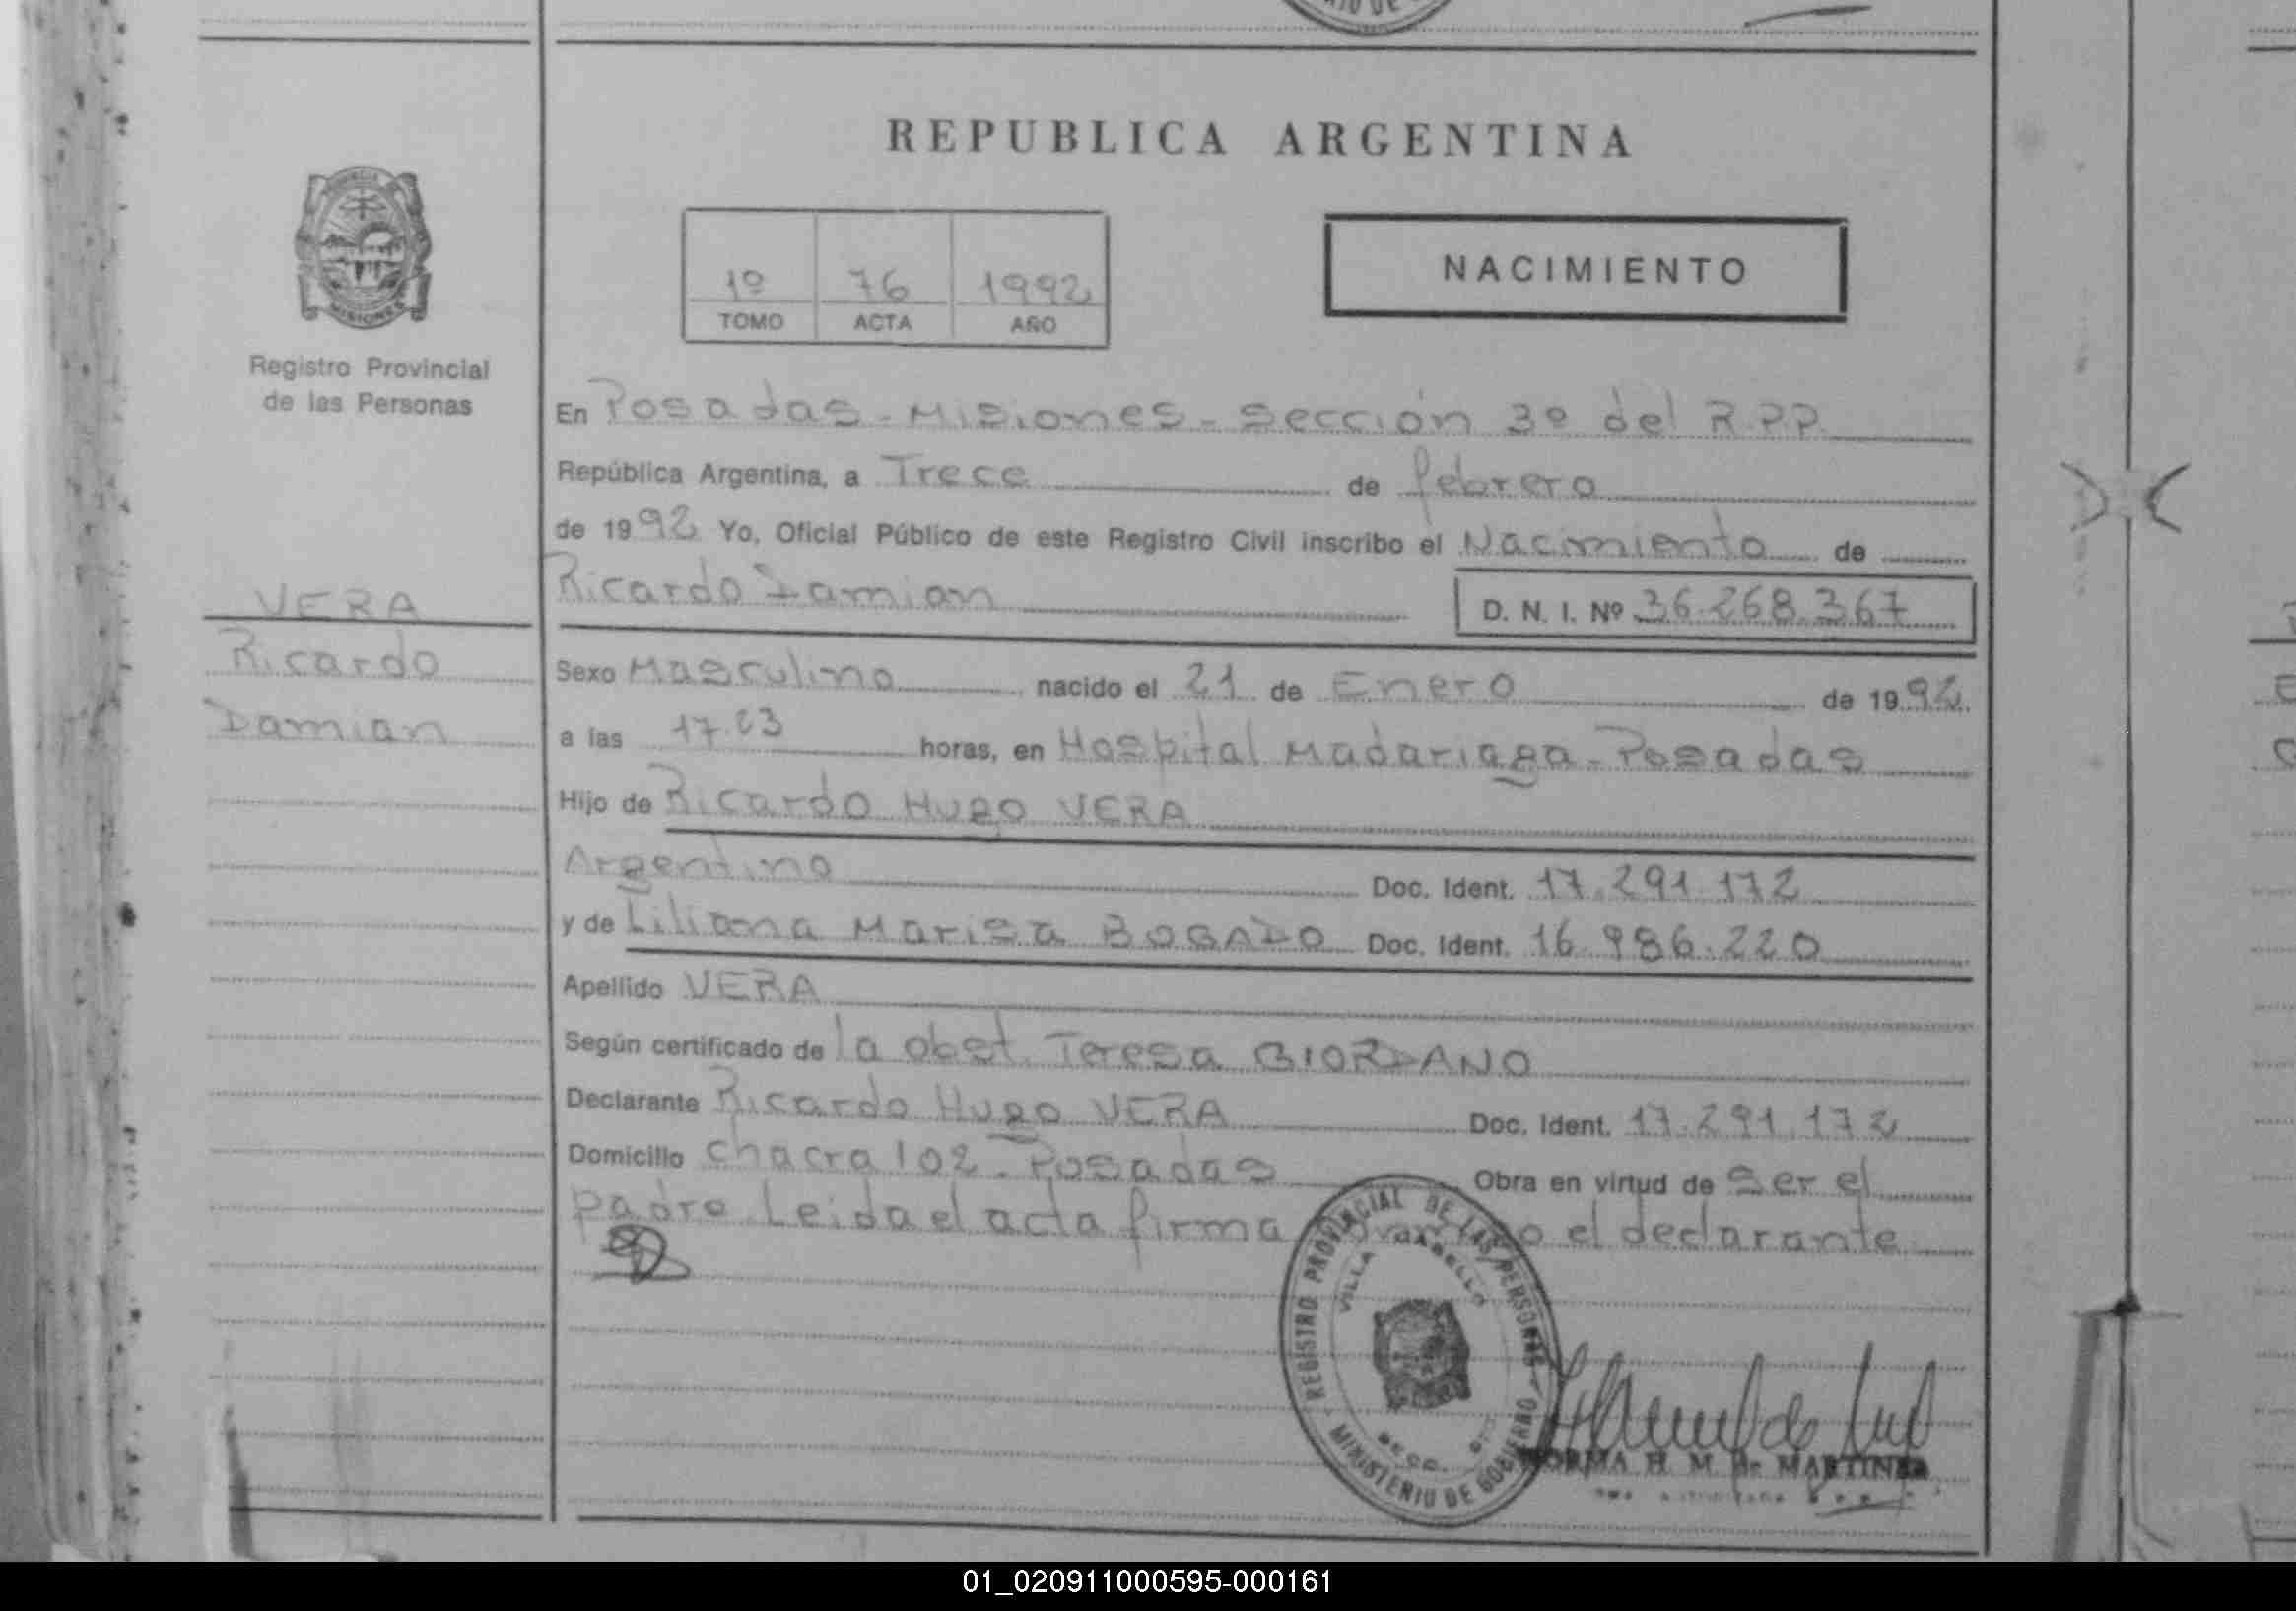 REPUBLICA ARGENTINA
MISIONES
Registro Provincial
de las Personas
1º 76 1992
TOMO ACTA AÑO
NACIMIENTO
VERA
Ricardo
Damian
En Posadas - Misiones - Sección 3º del R.P.P.
República Argentina, a Trece de febrero
de 1992 Yo, Oficial Público de este Registro Civil inscribo el Nacimiento de
Ricardo Damian D. N. I. Nº 36.268.367
Sexo Masculino nacido el 21 de Enero de 1992.
a las 17.23 horas, en Hospital Madariaga - Posadas
Hijo de Ricardo Hugo VERA
Argentino Doc. Ident. 17.291.172
y de Liliana Marisa BOGADO Doc. Ident. 16.986.220
Apellido VERA
Según certificado de la obst. Teresa GIORDANO
Declarante Ricardo Hugo VERA Doc. Ident. 17.291.172
Domicilio chacra 102 - Posadas Obra en virtud de ser el
padre. Leida el acta firma el declarante
REGISTRO PROVINCIAL DE LAS PERSONAS
VILLA CABELLO
MINISTERIO DE GOBIERNO
NORMA H. M. de MARTINEZ
01_020911000595-000161